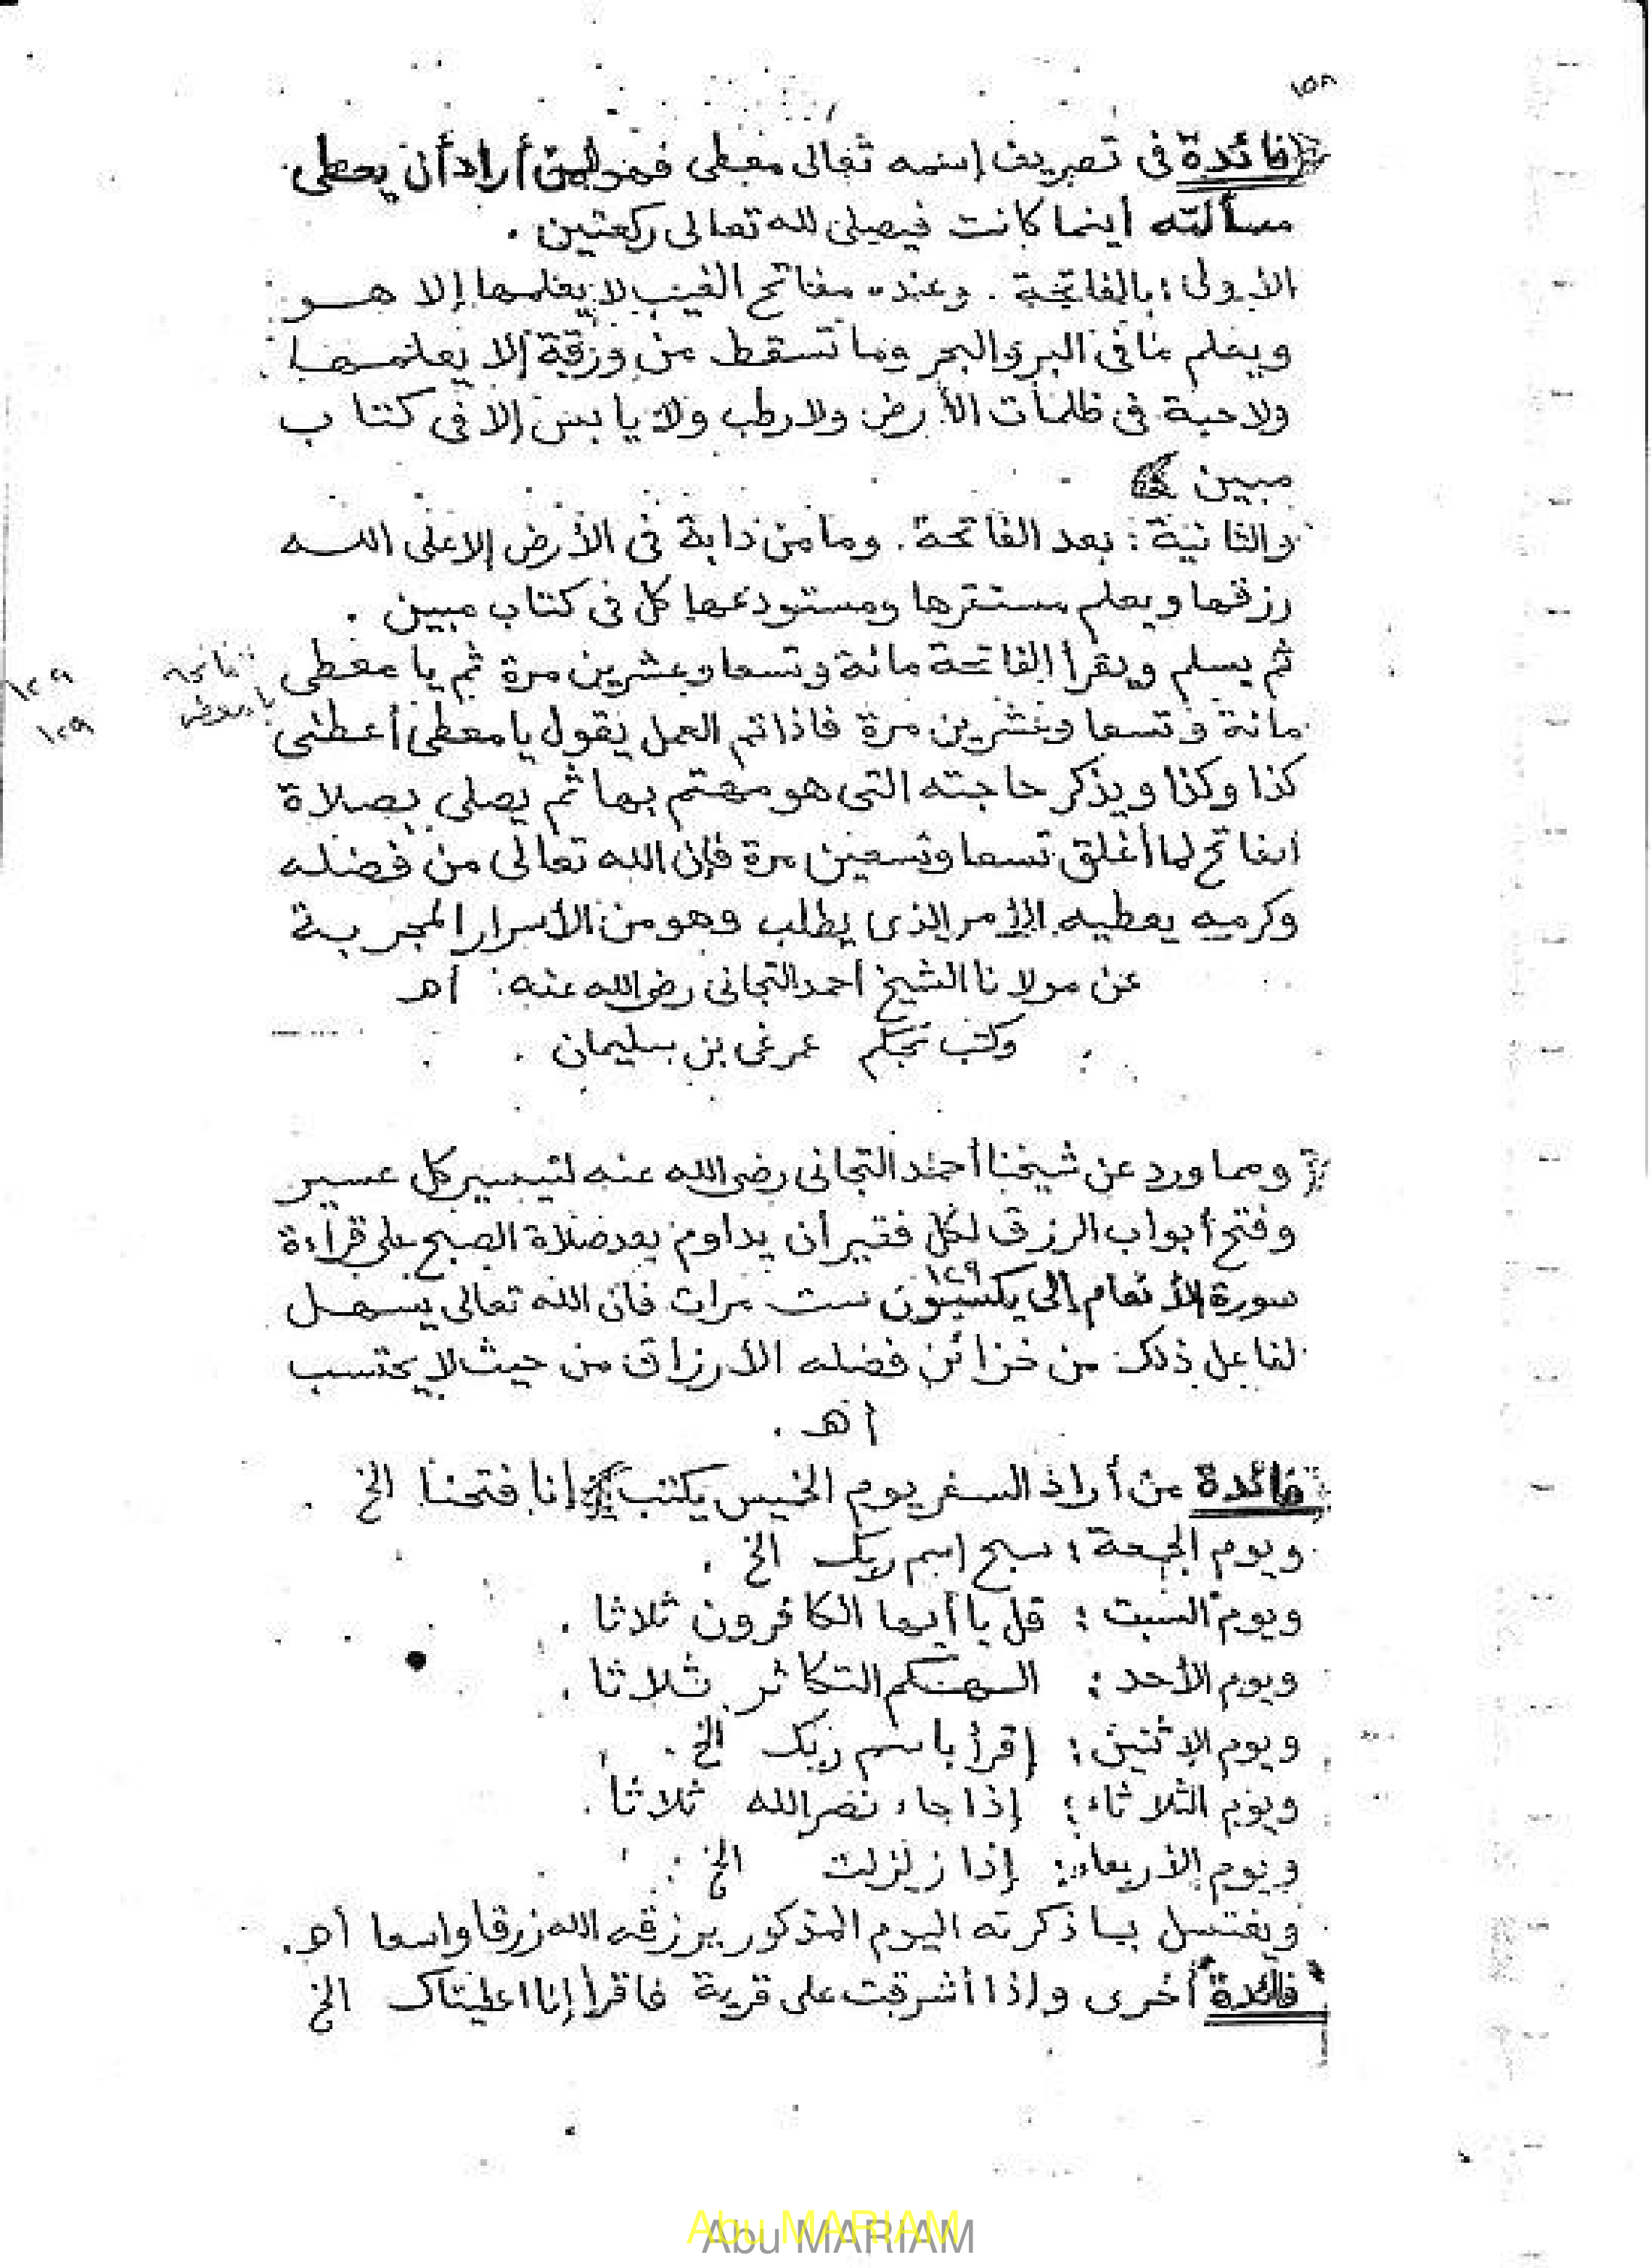 ١٥٨
فائدة في تصريف إسمه تعالى معطى فهو لمن أراد أن يعطى
مسألته أينما كانت فيصلى لله تعالى ركعتين .
الأولى : بالفاتحة . وعنده مفاتح الغيب لا يعلمها إلا هو
ويعلم ما فى البر والبحر وما تسقط من ورقة إلا يعلمها
ولا حبة فى ظلمات الأرض ولا رطب ولا يابس إلا فى كتاب
مبين
والثانية : بعد الفاتحة . وما من دابة فى الأرض إلا على الله
رزقها ويعلم مستقرها ومستودعها كل فى كتاب مبين .
ثم يسلم ويقرأ الفاتحة مائة وتسعا وعشرين مرة ثم يا معطى
فاتحة ١٢٩
يا معطى ١٢٩
مائة وتسعا وعشرين مرة فاذا تم العمل يقول يا معطى أعطنى
كذا وكذا ويذكر حاجته التى هو مهتم بها ثم يصلى بصلاة
الفاتح لما أغلق تسعا وتسعين مرة فإن الله تعالى من فضله
وكرمه يعطيه الأمر الذى يطلب وهو من الأسرار المجربة
عن مولانا الشيخ أحمد التجانى رضى الله عنه : أهـ
وكتب عمر بن سليمان .
ومما ورد عن شيخنا أحمد التجانى رضى الله عنه لتيسير كل عسير
وفتح أبواب الرزق لكل فقير أن يداوم بعد صلاة الصبح على قراءة
سورة الأنعام إلى يكسبون ١٢٩ ست مرات فان الله تعالى يسهل
لفاعل ذلك من خزائن فضله الأرزاق من حيث لا يحتسب
أهـ .
فائدة من أراد السفر يوم الخميس يكتب إنا فتحنا الخ .
ويوم الجمعة : سبح اسم ربك الخ .
ويوم السبت : قل يا أيها الكافرون ثلاثا .
ويوم الأحد : الهىكم التكاثر ثلاثا .
ويوم الإثنين : إقرأ باسم ربك الخ .
ويوم الثلاثاء : إذا جاء نصر الله ثلاثا .
ويوم الأربعاء : إذا زلزلت الخ .
ويغتسل بما ذكرته اليوم المذكور يرزقه الله رزقا واسعا أهـ .
فائدة أخرى وإذا أشرقت على قرية فاقرأ إنا اعطيناك الخ
Abu MARIAM